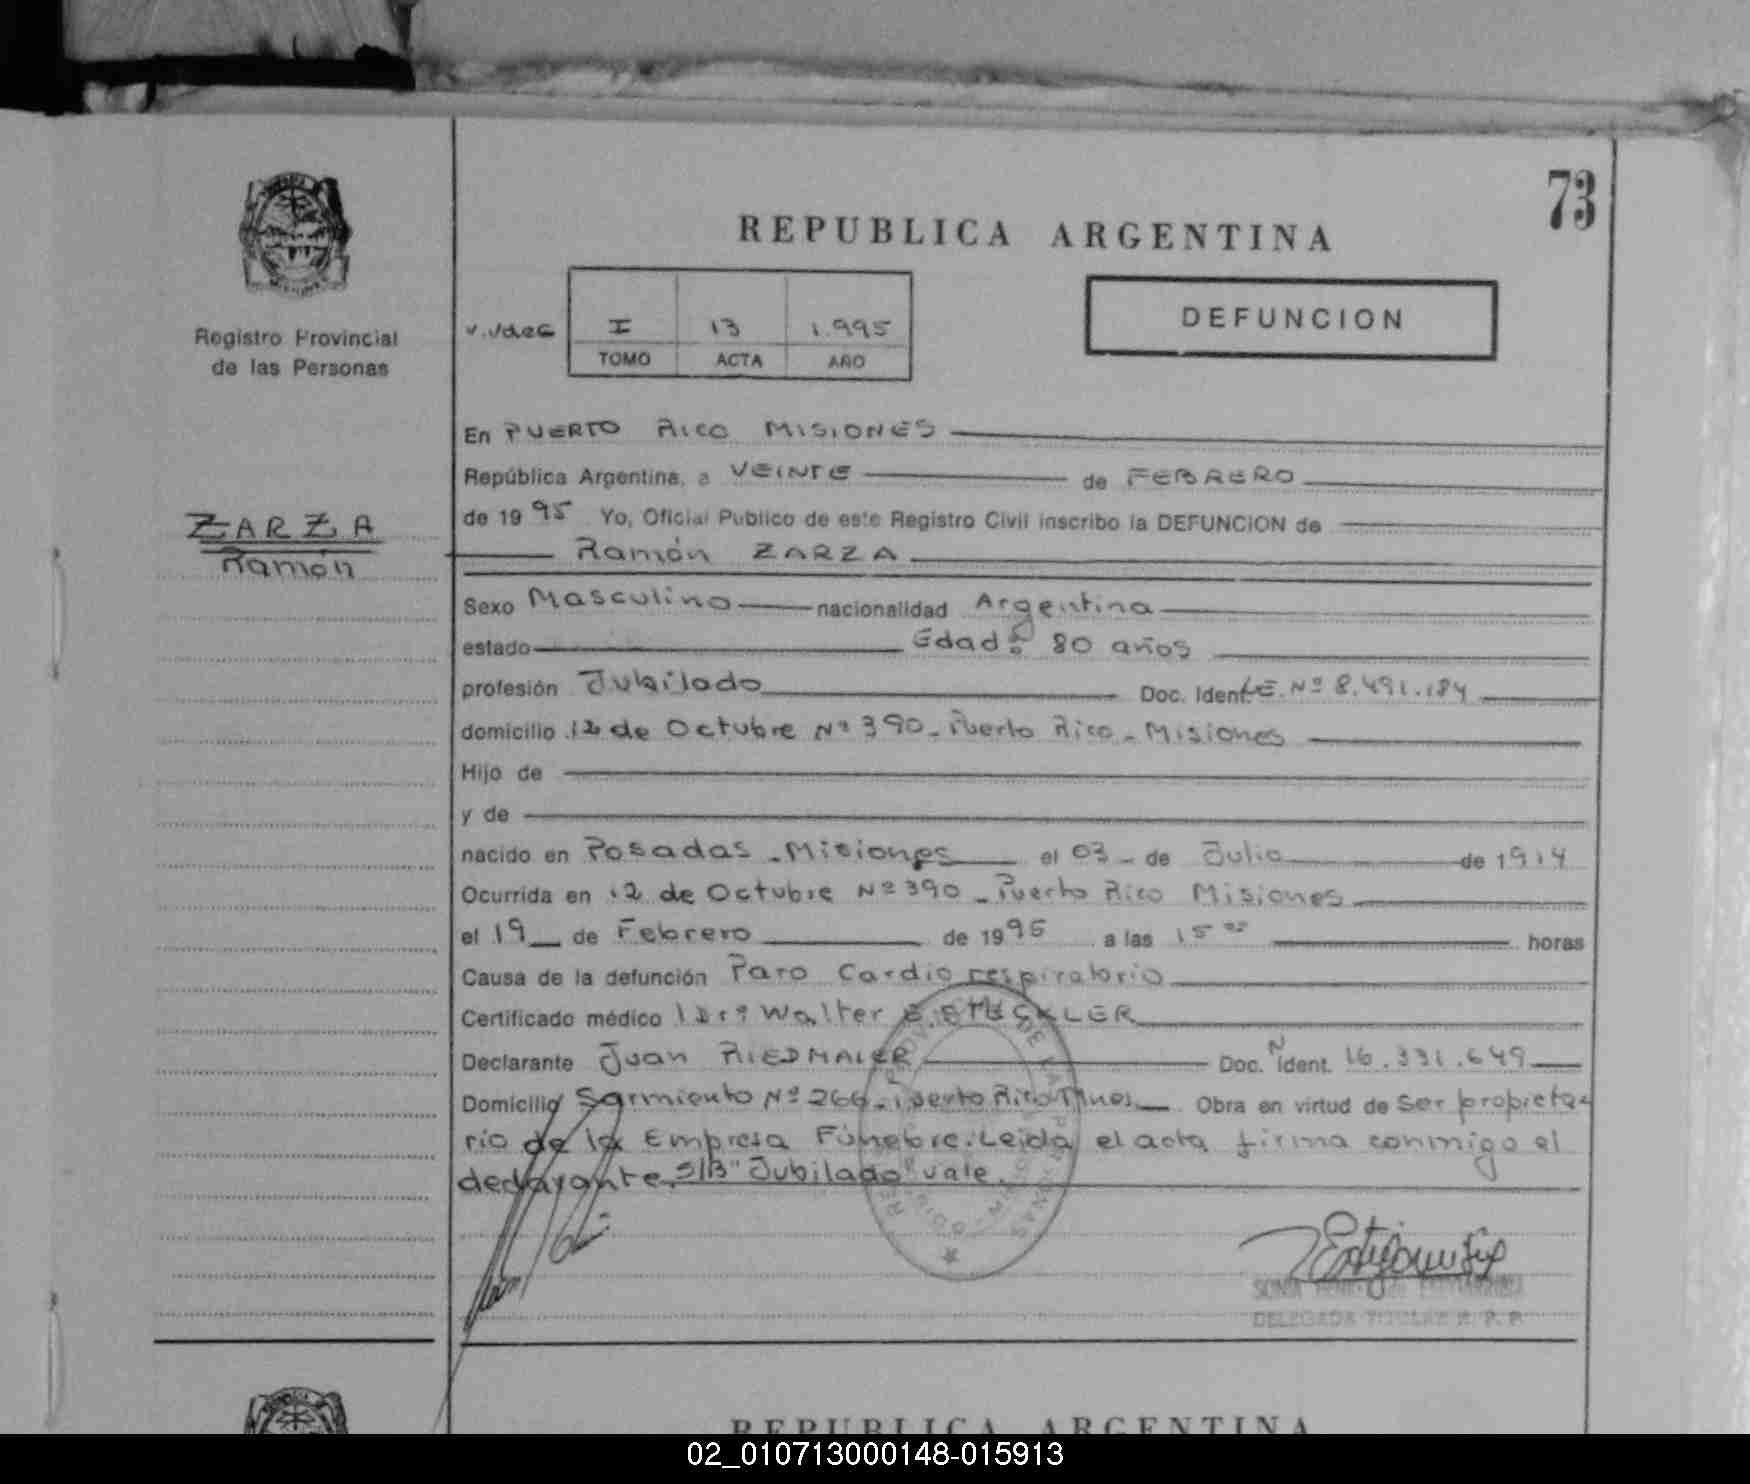 73
REPUBLICA ARGENTINA
Registro Provincial
de las Personas
I 13 1.995
TOMO ACTA AÑO
DEFUNCION
ZARZA
Ramón
En PUERTO RICO MISIONES
República Argentina, a VEINTE de FEBRERO
de 1995 Yo, Oficial Publico de este Registro Civil inscribo la DEFUNCION de
Ramón ZARZA
Sexo Masculino nacionalidad Argentina
estado Edad: 80 años
profesión Jubilado Doc. Ident. L.E. Nº 8.491.184
domicilio 12 de Octubre Nº 390 - Puerto Rico - Misiones
Hijo de
y de
nacido en Posadas - Misiones el 03 - de Julio de 1914
Ocurrida en 12 de Octubre Nº 390 - Puerto Rico Misiones
el 19 de Febrero de 1995 a las 15 horas
Causa de la defunción Paro Cardio respiratorio
Certificado médico Walter
Declarante Juan RIEDMAIER Doc. N Ident. 16.331.649
Domicilio Sarmiento Nº 266 - Puerto Rico Mnes. Obra en virtud de Ser propieta-
rio de la Empresa Fúnebre. Leida el acta firma conmigo el
declarante. S/B "Jubilado vale.
DELEGADA TITULAR R. P. P.
REPUBLICA ARGENTINA
02_010713000148-015913